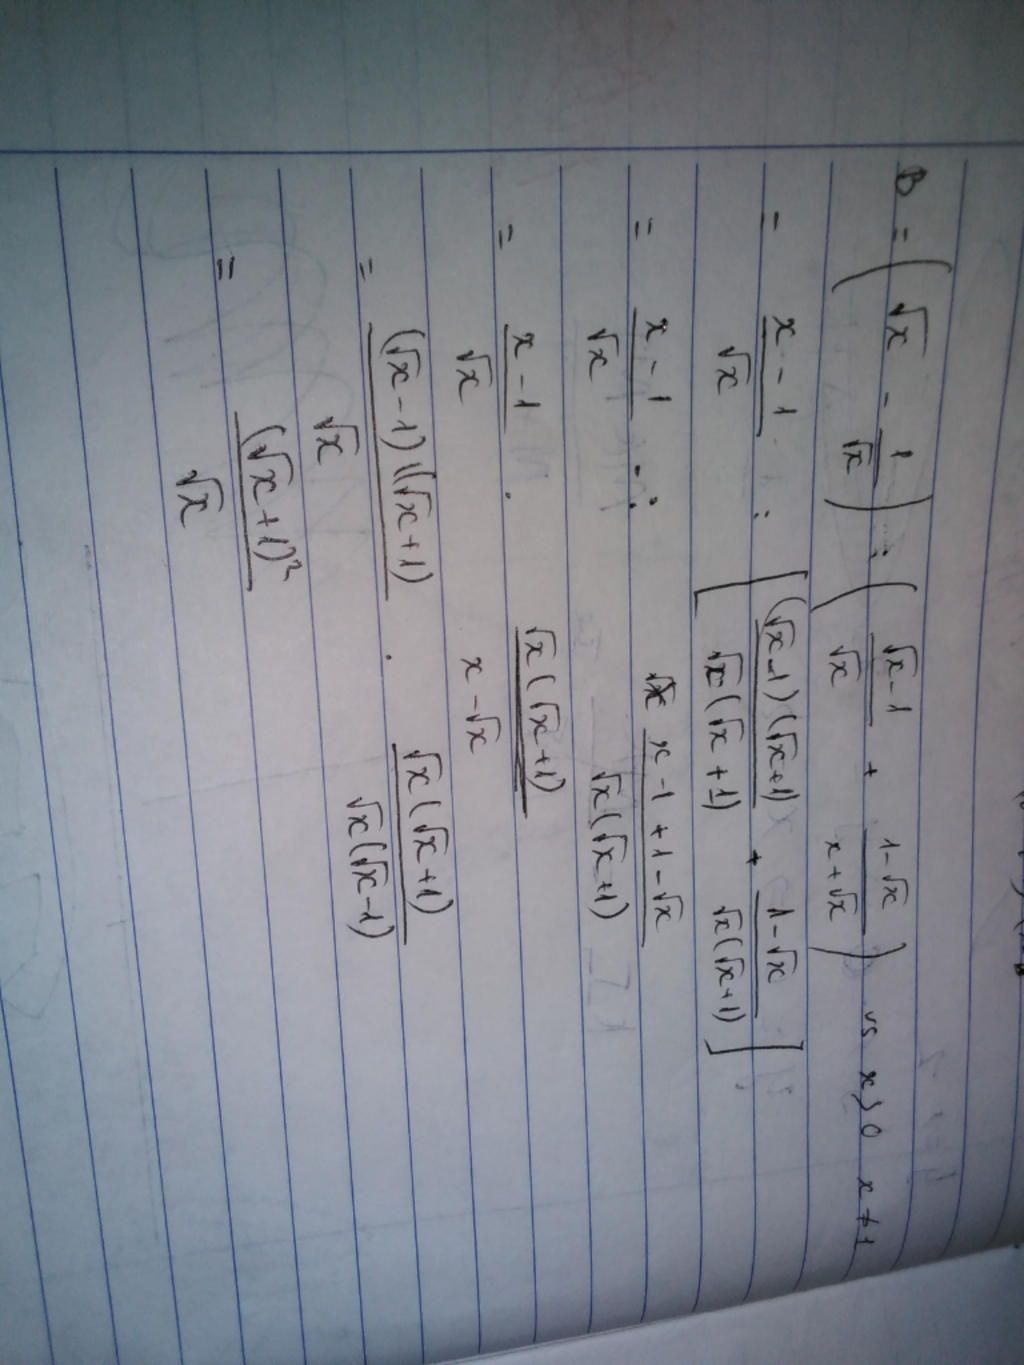 B = ( √x - 1/√x ) : ( (√x-1)/√x + (1-√x)/(x+√x) ) vs x>0 x≠1
= (x-1)/√x : [ (√x-1)(√x+1)/√x(√x+1) + (1-√x)/√x(√x+1) ]
= (x-1)/√x : (x-1+1-√x)/√x(√x+1)
= (x-1)/√x . √x(√x+1)/(x-√x)
= (√x-1)(√x+1)/√x . √x(√x+1)/√x(√x-1)
= (√x+1)²/√x